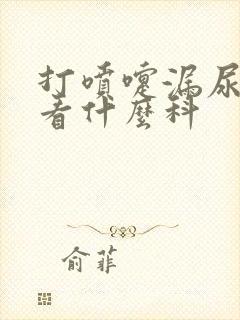 打噴嚏漏尿
看什麼科
俞菲